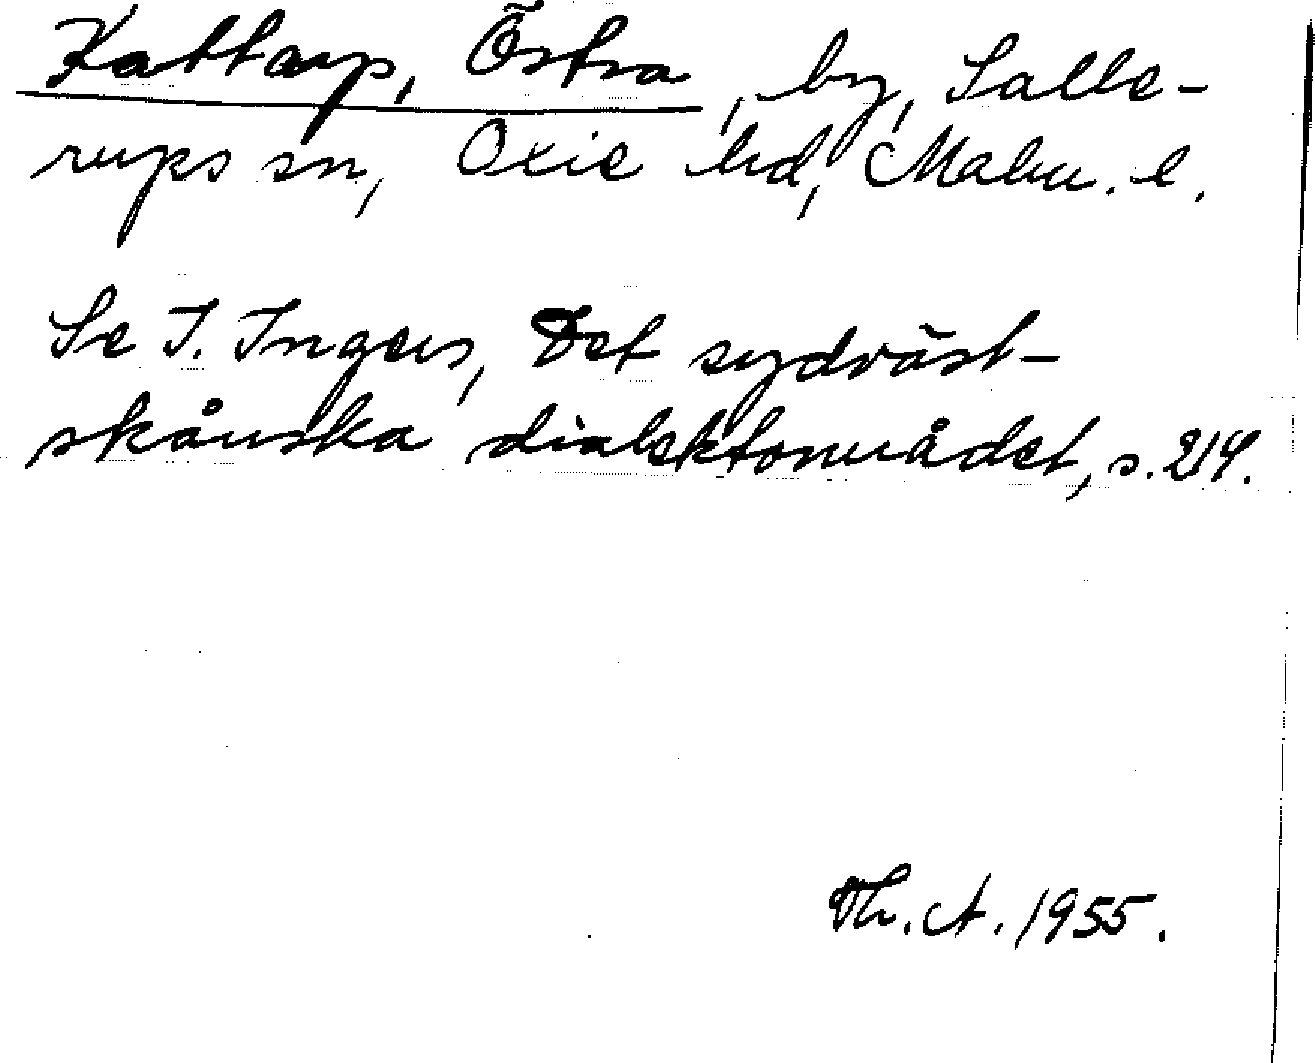 Kattarp, Östra, by, Salle-
rups sn, Oxie hd, Malm. l.
Se I. Ingers, Det sydväst-
skånska dialektområdet, s. 214.
Th. A. 1955.